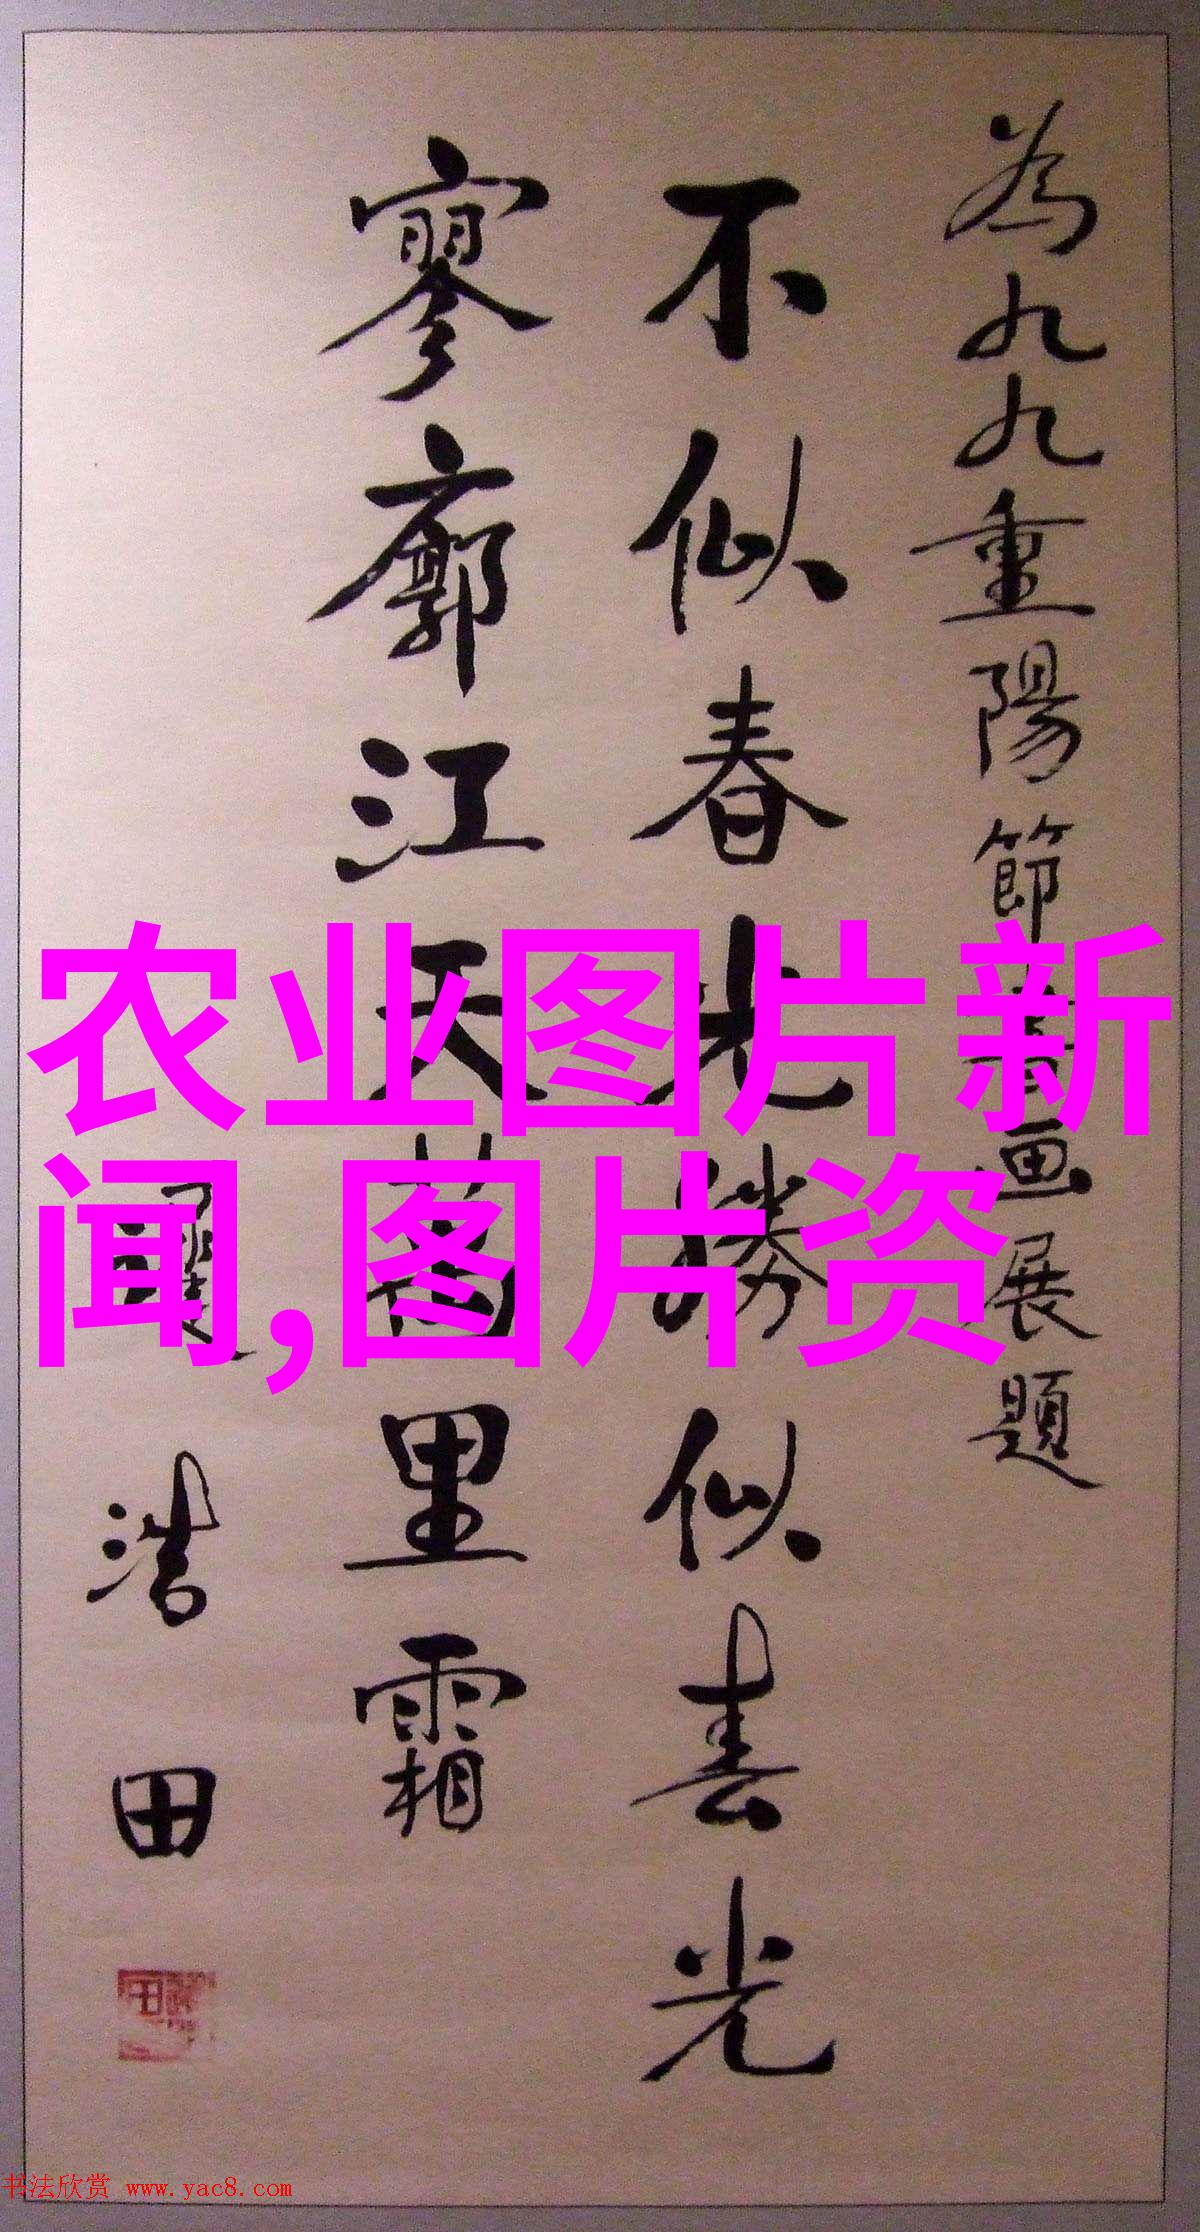 為九九重陽節書画展題
不似春光勝似春光
寥廓江天萬里霜
浩田
农业图片新
闻,图片资
书法欣赏 www.yac8.com